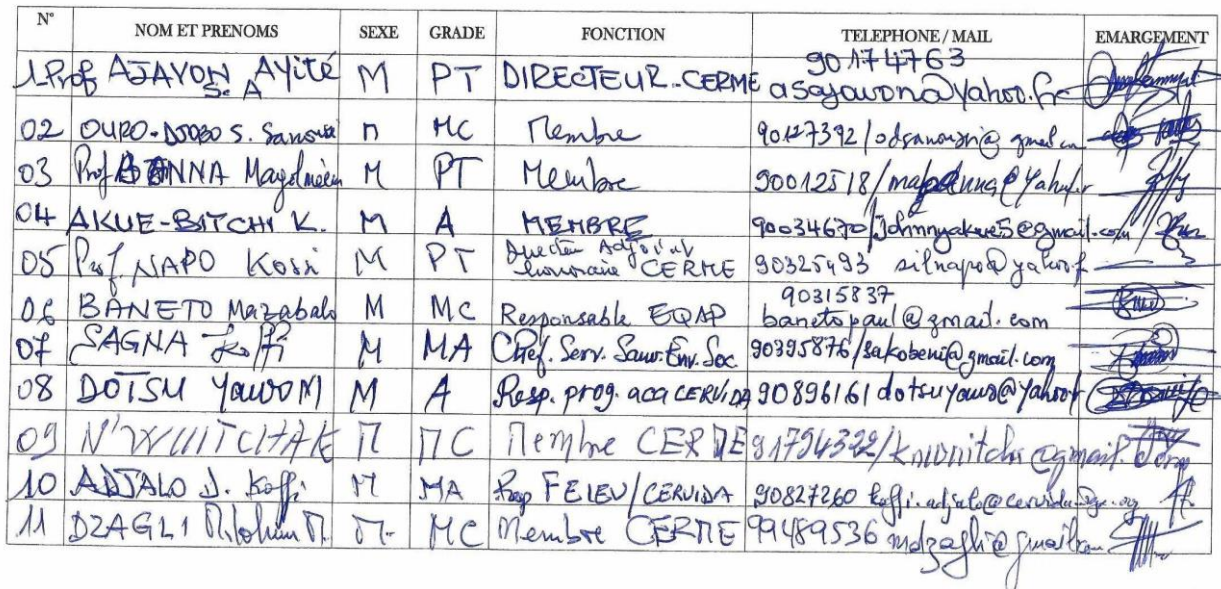 N° NOM ET PRENOMS SEXE GRADE FONCTION TELEPHONE / MAIL EMARGEMENT
1 Prof AJAVON Ayité S. A M PT DIRECTEUR-CERME 90174763 asajavon@yahoo.fr
02 OURO-DJOBO S. Sanoussi M MC Membre 90127392/odsanoussi@gmail.com
03 Prof BANNA Magolmèèna M PT Membre 90012518/
04 AKUE-BITCHI K. M A MEMBRE 90034670/Johnnyakue5@gmail.com
05 Prof NAPO Kossi M PT Directeur Adjoint honoraire CERME 90325493 silnapo@yahoo.f
06 BANETO Mazabalo M MC Responsable EQAP 90315837 banetopaul@gmail.com
07 SAGNA Koffi M MA Chef. Serv. Sauv. Env. Soc 90395876/sakobeni@gmail.com
08 DOTSU Yawo M M A Resp. prog. aca CERVIDA 90896161 dotsuyawo@yahoo.f
09 N'WUITCHA K M MC Membre CERME 91794322/
10 ADJALO D. Koffi M MA Resp FELEU/CERVIDA 90827260
11 DZAGLI Milohum M. M. MC Membre CERME 99489536 mdzagli@gmail.com